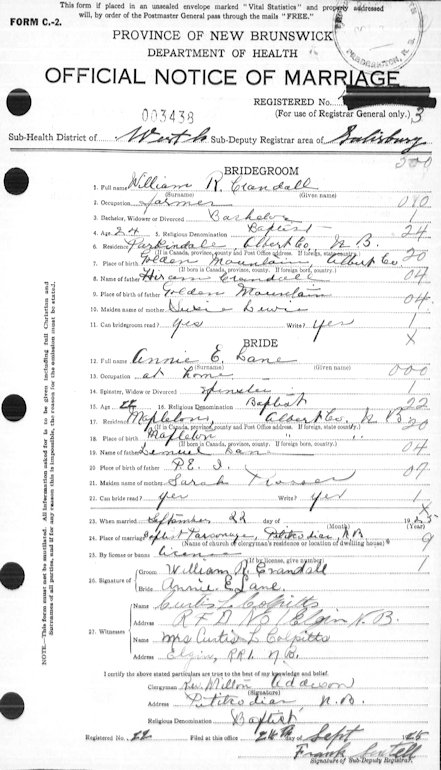 This form if placed in an unsealed envelope marked "Vital Statistics" and properly addressed
will, by order of the Postmaster General pass through the mails "FREE."
FORM C.-2.
PROVINCE OF NEW BRUNSWICK
DEPARTMENT OF HEALTH
OFFICIAL NOTICE OF MARRIAGE
003438
REGISTERED No.
(For use of Registrar General only.) 3
Sub-Health District of Sub-Deputy Registrar area of Salisbury
BRIDEGROOM
1. Full name William R. Crandall
(Surname) (Given name)
2. Occupation farmer
3. Bachelor, Widower or Divorced Bachelor 1
4. Age 24 5. Religious Denomination Baptist 24
6. Residence Parkindale, Albert Co., N B. 20
(If in Canada, province, county and Post Office address. If foreign, state country)
7. Place of birth Golden Mountain, Albert Co.
(If born in Canada, province, county. If foreign born, country.)
8. Name of father Hiram Crandall 04
9. Place of birth of father Golden Mountain 04
(If born in Canada, province, county. If foreign born, country.)
10. Maiden name of mother
11. Can bridegroom read? yes Write? yes 1
BRIDE
12. Full name Annie E. Lane
(Surname) (Given name)
13. Occupation at home 000
14. Spinster, Widow or Divorced Spinster 1
15. Age 22 16. Religious Denomination Baptist 22
17. Residence Mapleton, Albert Co., N B 20
(If in Canada, province, county and Post Office address. If foreign, state country)
18. Place of birth Mapleton " "
(If born in Canada, province, county. If foreign born, country.)
19. Name of father Lemuel Lane 04
20. Place of birth of father P.E. I. 07
21. Maiden name of mother Sarah
22. Can bride read? yes Write? yes 1
23. When married September 22 day of 1925
(Month) (Year)
24. Place of marriage Baptist Parsonage, Petitcodiac, N.B. 9
(Name of church or clergyman's residence or location of dwelling house)
25. By license or banns license 1
(If by license, give number)
26. Signature of
Groom William R. Crandall
Bride Annie E. Lane
27. Witnesses
Name Curtis L. Colpitts
Address R F D No 1 Elgin N. B.
Name Mrs Curtis L. Colpitts
Address Elgin, RR1. N B.
I certify the above stated particulars are true to the best of my knowledge and belief.
Clergyman Rev. Milton Addison
(Signature)
Address Petitcodiac, N.B.
Religious Denomination Baptist
Registered No. 22 Filed at this office 24th day of Sept 1925
Frank
Signature of Sub-Deputy Registrar.
NOTE.—This form must not be mutilated. All information asked for is to be given including full Christian and
Surnames of all parties, and if for any reason the omission must be stated.